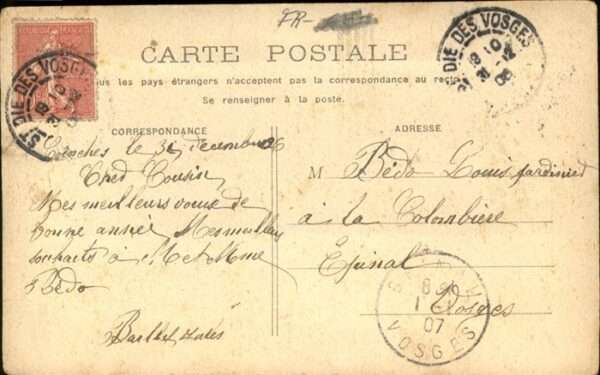 FR-
CARTE POSTALE
Tous les pays étrangers n'acceptent pas la correspondance au recto
Se renseigner à la poste.
ST DIE DES VOSGES
ST DIE DES VOSGES
CORRESPONDANCE
Coinches le 31 decembre 06
Cher Cousin
Mes meilleurs voeux de
bonne année Mes meilleurs
souhaits à M et Mme
Bédo
ADRESSE
M Bédo Louis jardinier
à la Colombière
Epinal
Vosges
EPINAL
8
1
07
VOSGES